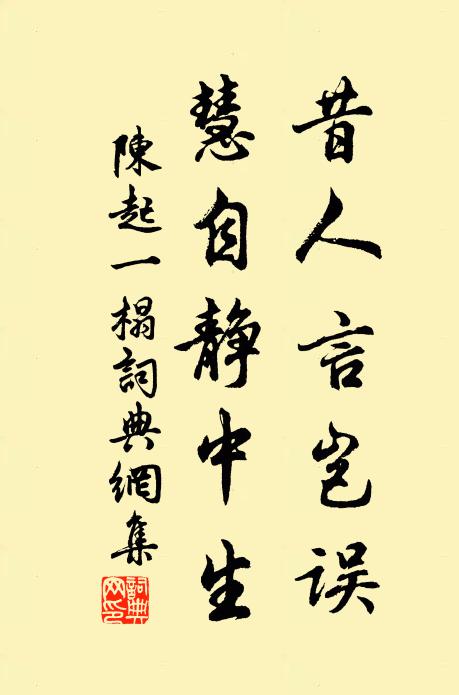 昔人言岂误
慧自静中生
陳起一榻詞典網集
詞典网印